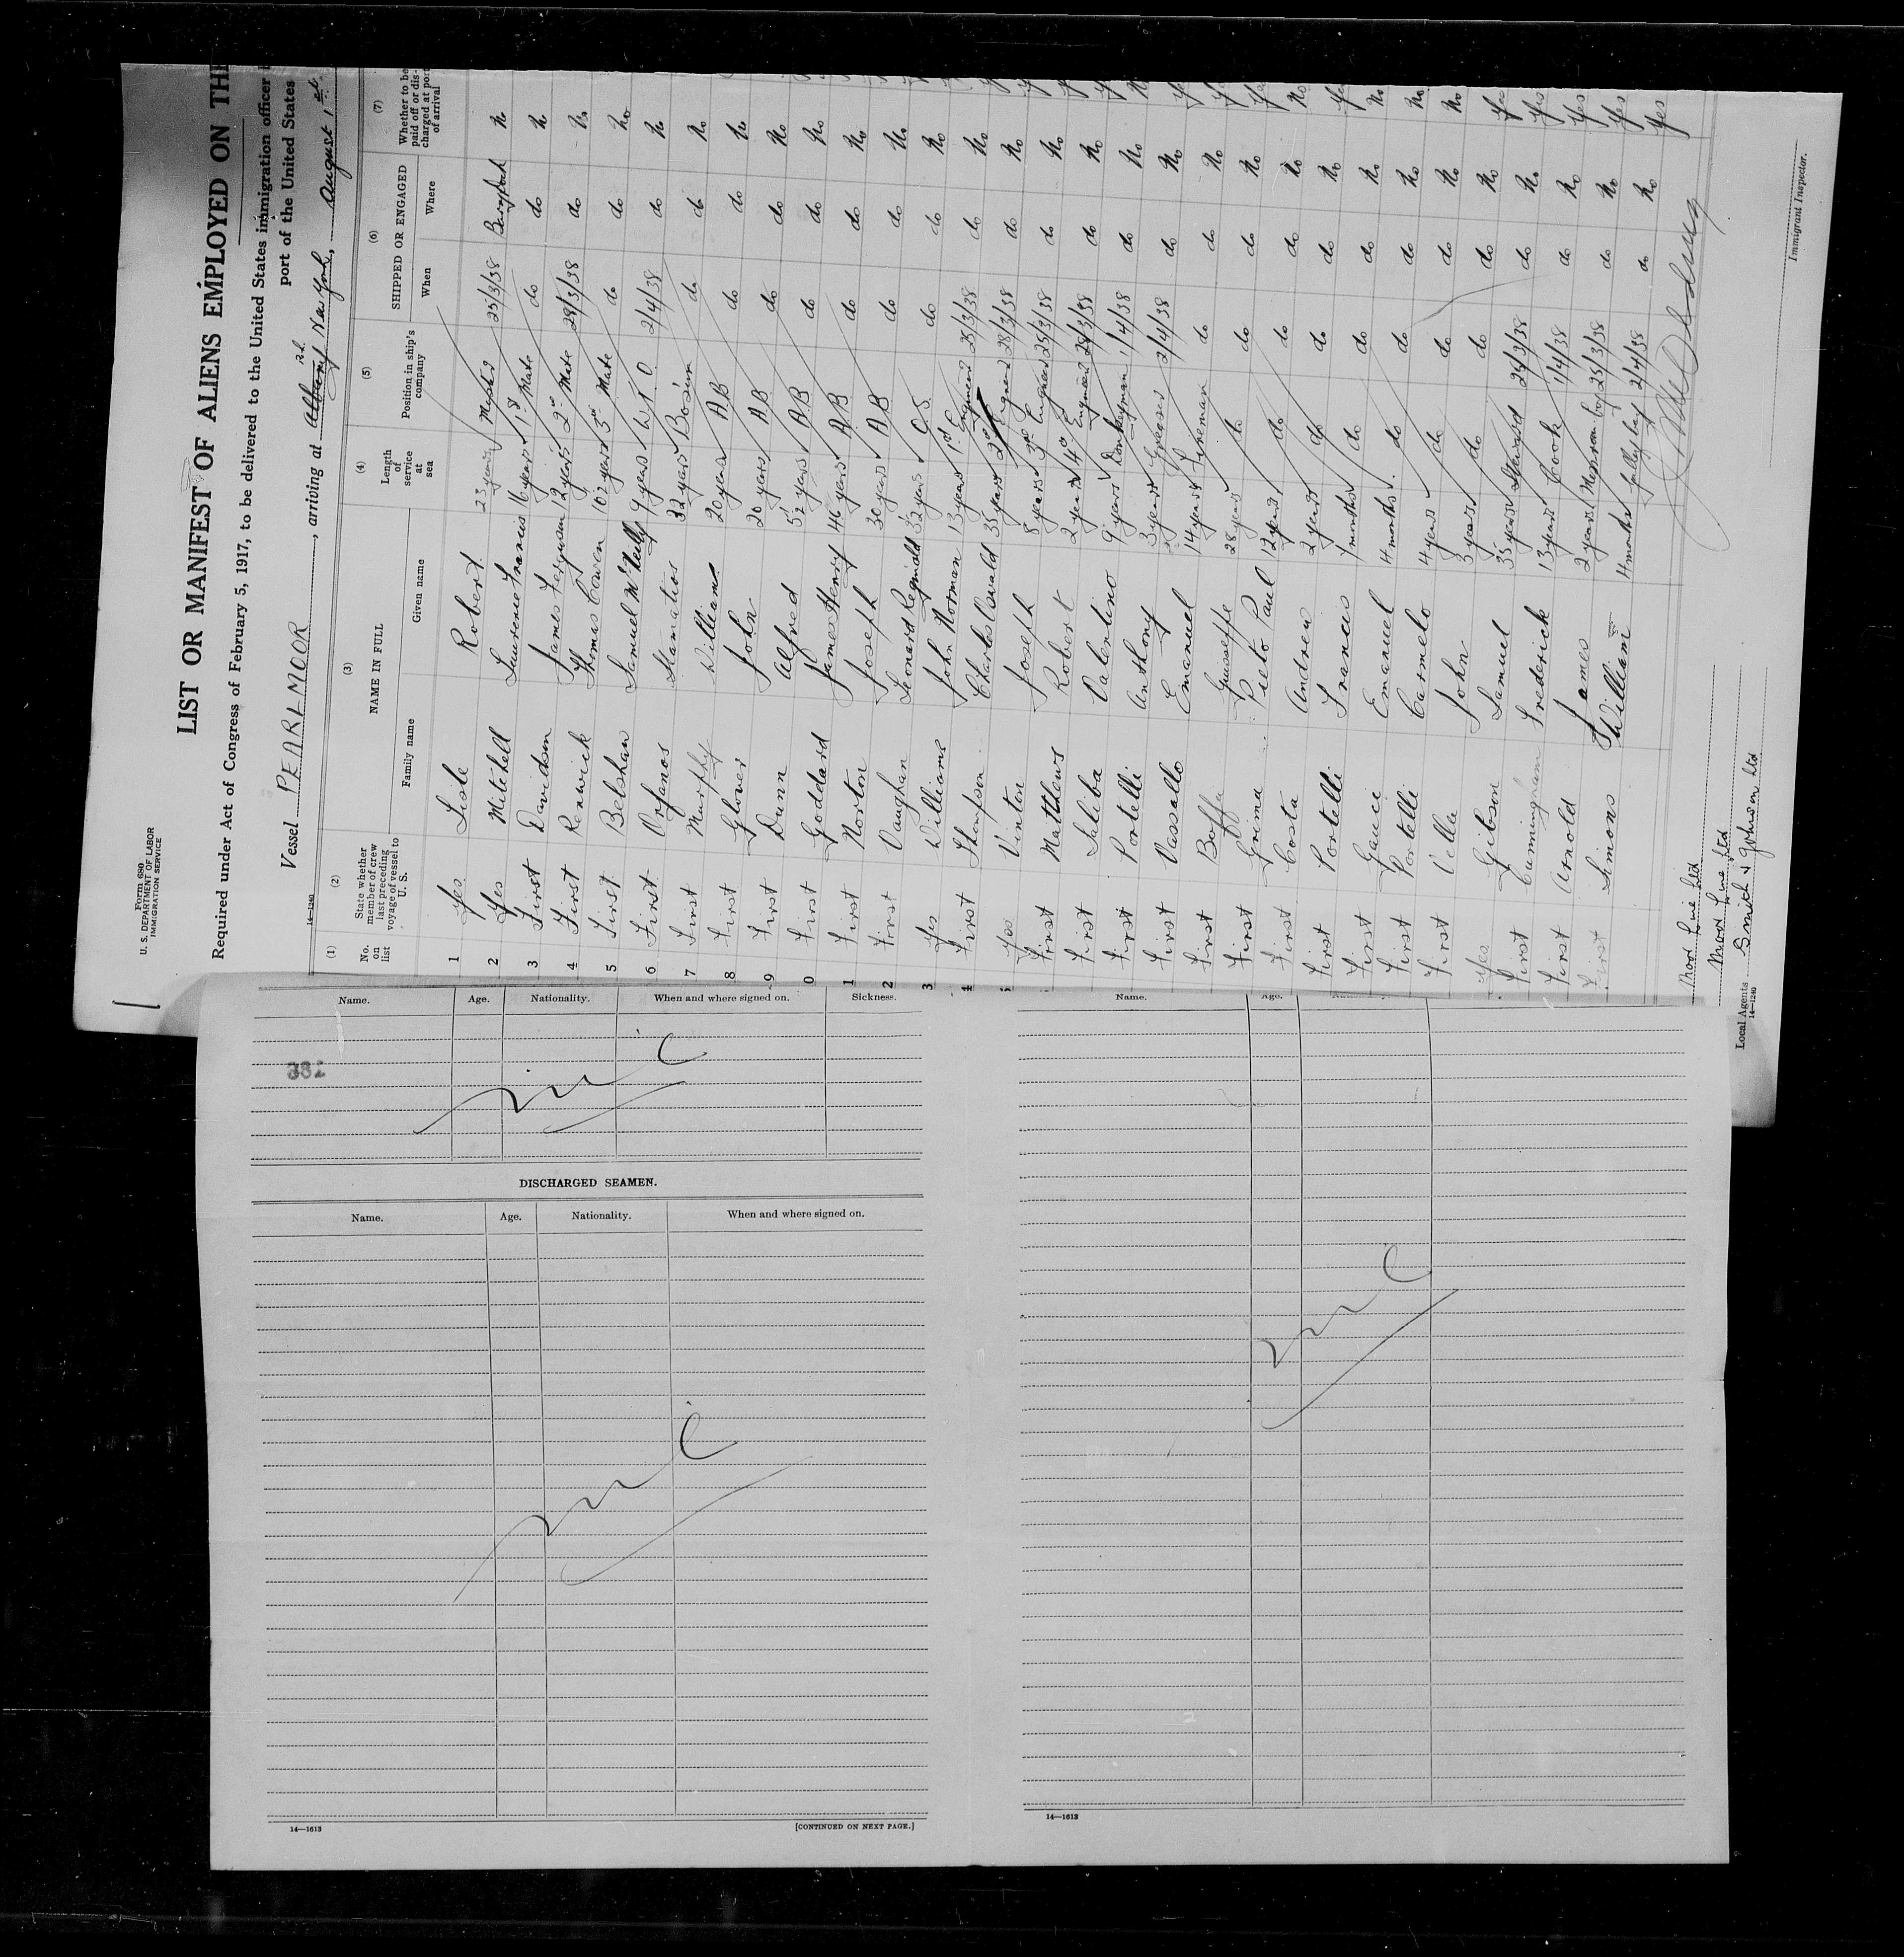 Form 680
U. S. DEPARTMENT OF LABOR
IMMIGRATION SERVICE
LIST OR MANIFEST OF ALIENS EMPLOYED ON THE
Required under Act of Congress of February 5, 1917, to be delivered to the United States immigration officer
port of the United States
Vessel PEARLMOOR, arriving at Albany New York, August 1st
14—1240
(1) (2) (3) (4) (5) (6) (7)
No. on list State whether member of crew last preceding voyage of vessel to U. S. NAME IN FULL Family name Given name Length of service at sea Position in ship's company SHIPPED OR ENGAGED When Where Whether to be paid off or discharged at port of arrival
1 Yes Lisle Robert 23 years Master 25/3/38 No
2 Yes Mitchell Laurence Francis 16 years 1st Mate do do No
3 First Davidson James Ferguson 12 years 2nd Mate 29/3/38 do No
4 First Renwick Thomas Cowen 10½ years 3rd Mate do do No
5 First Belshaw Samuel McNeilly 9 years W.T.O. 2/4/38 do No
6 First Orfanos Stamatios 32 years Bosun do do No
7 First Murphy William 20 years AB do do No
8 First Glover John 20 years AB do do No
9 First Dunn Alfred 5½ years AB do do No
0 First Goddard James Henry 46 years AB do do No
1 First Norton Joseph 30 years AB do do No
2 First Vaughan Leonard Reginald O.S. do do No
3 Yes Williams John Norman 13 years 1st Engineer 25/3/38 do No
4 First Thompson Charles Oswald 35 years 2nd Engineer 28/3/38 do No
5 Yes Vinton Joseph 8 years 3rd Engineer 25/3/38 do No
First Matthews Robert 2 years 4th Engineer 28/3/38 do No
First Saliba Valentino 9 years Donkeyman 1/4/38 do No
First Portelli Anthony 3 years Greaser 2/4/38 do No
First Vassallo Emanuel 14 years Fireman do do No
First Boffa Guiseffe 28 years do do do No
First Grima Pieto Paul 12 years do do do No
First Costa Andrea 2 years do do do No
First Portelli Francis 7 months do do do No
First Gauci Emanuel 4 months do do do No
First Portelli Carmelo 4 years do do do No
First Vella John 3 years do do do No
Yes Gibson Samuel 35 years Steward 24/3/38 do No
First Cunningham Frederick 13 years Cook 1/4/38 do No
First Arnold James 2 years Messroom boy 25/3/38 do No
First Simons William 4 months Galley boy 2/4/38 do No
Yes
Yes
Yes
Yes
Yes
Moor Line Ltd
Moor Line Ltd
Local Agents Smith & Johnson Ltd
14—1240
Immigrant Inspector.
Name. Age. Nationality. When and where signed on. Sickness.
382
Nil
DISCHARGED SEAMEN.
Name. Age. Nationality. When and where signed on.
Nil
14—1613
[CONTINUED ON NEXT PAGE.]
Name. Age.
Nil
14—1613